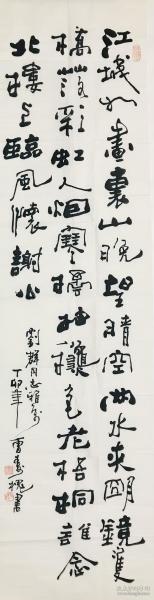 江城如畫裏山晚望晴空兩水夾明鏡雙
橋落彩虹人烟寒橘柚穐色老梧桐誰念
北樓上臨風懷謝公
劉群同志雅屬
丁卯年曹壽槐書